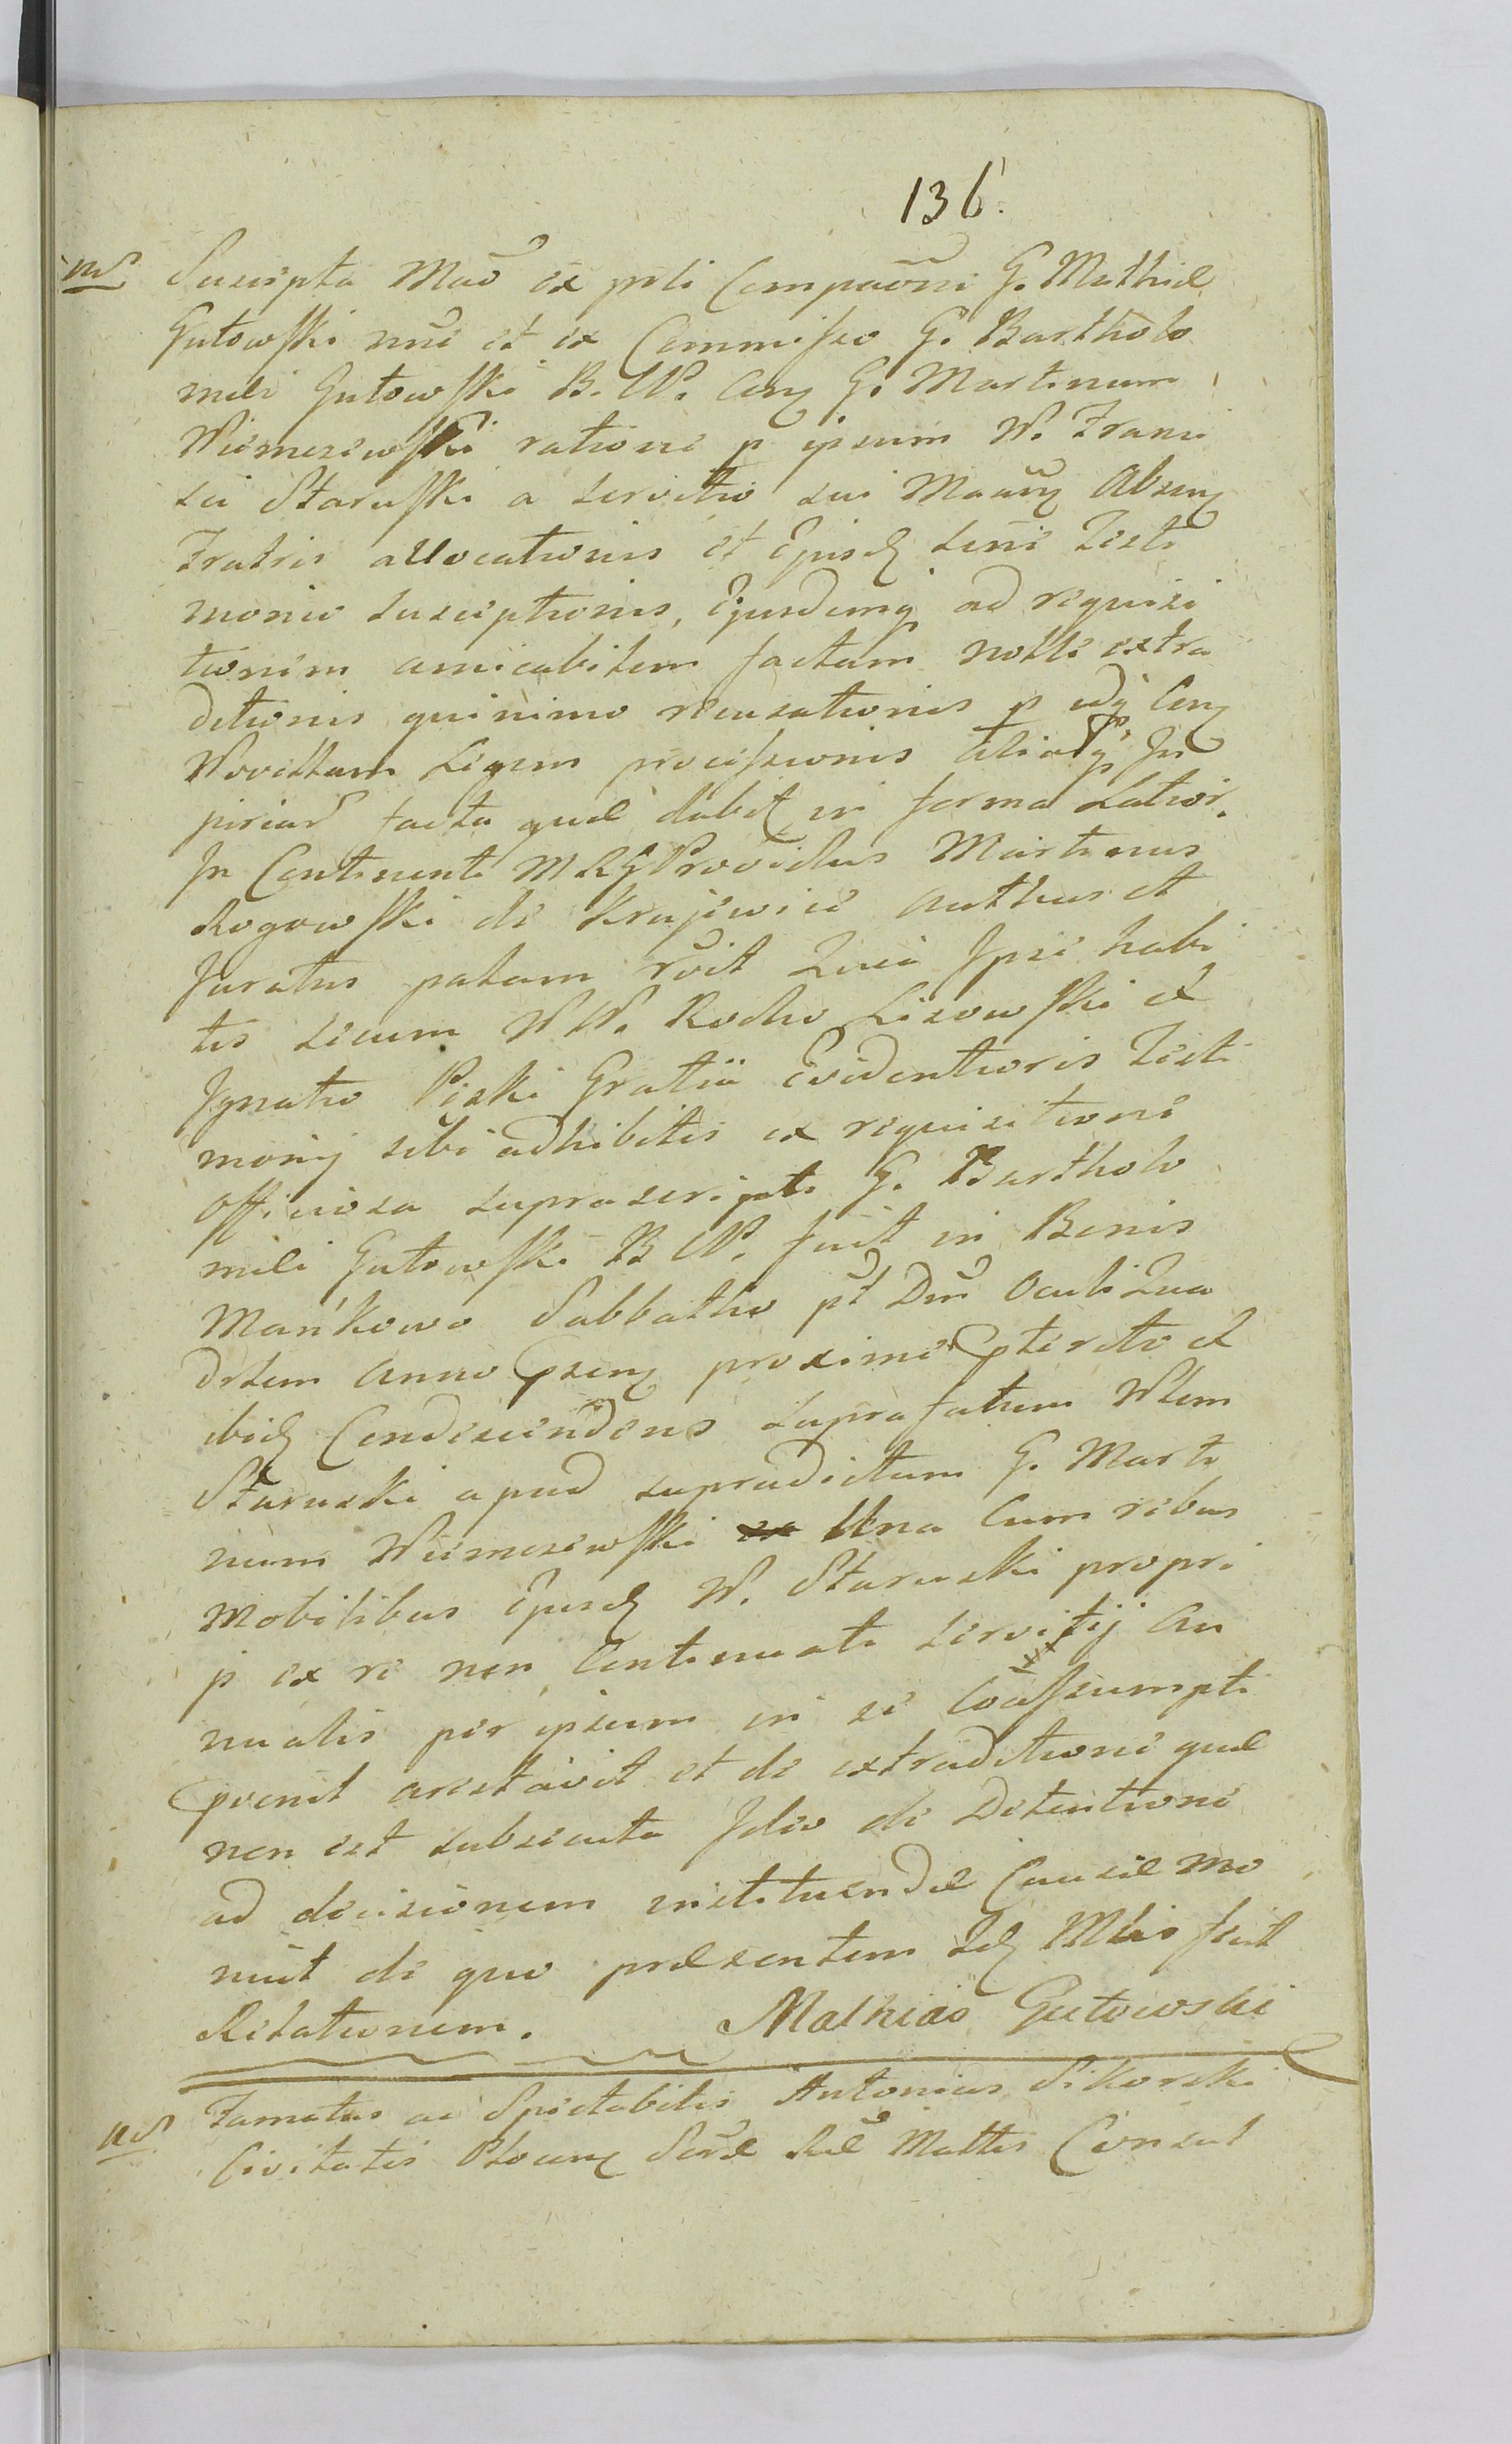 136.
Suscepta Mao ex prli Comparoni G. Mathiæ
Gutowski nne et ex Commisso G. Bartholo
mæi Gutowski B. W. Cong G. Martinum
Wiemszewski ratione p ipsum W. Franci
sci Staruski a servitio sui Maang Absen
Fratris allocationis et Ejusd sine Testi
monio susceptionis, Ejusdemq ad requisi
tionem amicabilem factam nolle extra
ditionis quinimo recusationis p
Novellam Legem processionis aliasq In
feriar facta quæ dabit in forma Latior.
In Contenenti MRG Providus Martinus
Rogowski de Krajewice authus et
Juratus palam rcit Quia Ipse habi
tis secum WW. Rocho Lisowski et
Ignatio Piski Gratia Evidentioris Testi
monij sibi adhibitis ex requisitione
officiosa suprascripti G. Bartholo
mæi Gutowski B W. fuit in Bonis
Mańkowo Sabbatho pt Dni Oculi Qua
dslem Anno Psen proxime Pterito et
ibid Condescendens suprafatum Wlem
Staruski apud supradictum G. Marti
num Wiemszewski Una Cum rebus
Mobilibus Ejusd W. Staruski propri
js ex re non Continuati servitij An
nualis per ipsum in se Coassumpti
Pvenit arestavit et de extraditione quæ
non est subsecuta Ideo de Detentione
ad decisionem instituendæ Causæ mo
nuit de quo præsentem sd Mtis fecit
Relationem. Mathias Gutowski
Famatus ac Spectabilis Antonius Sikorski
Civitatis Plocen Sacræ Ræ Mattis Consul